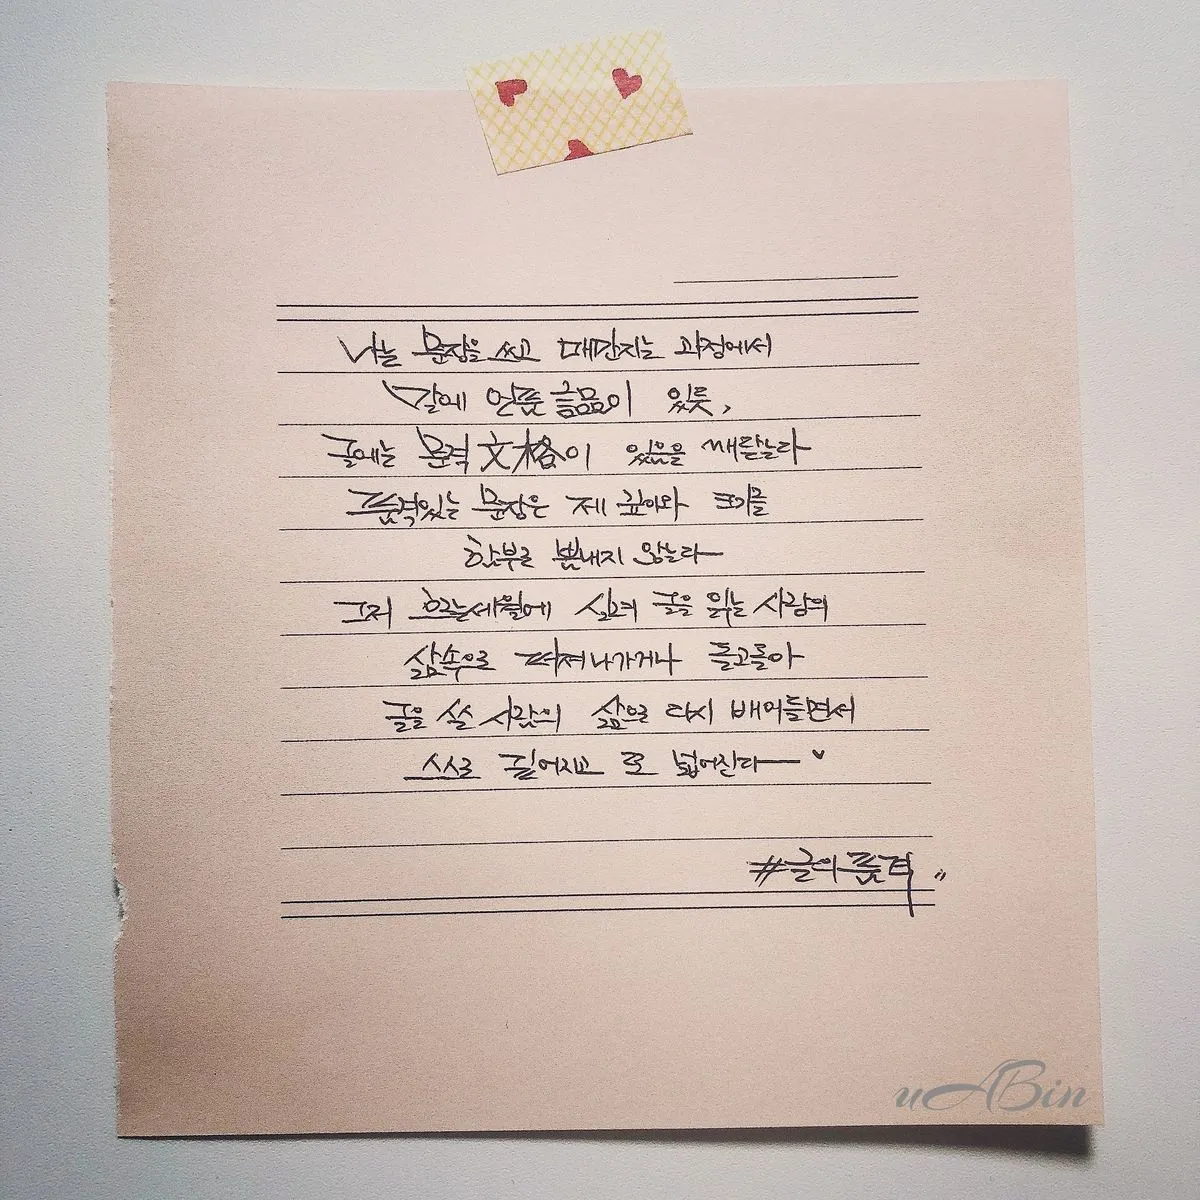 나는 문장을 쓰고 매만지는 과정에서
말에 언품言品이 있듯,
글에는 문격文格이 있음을 깨닫는다
품격있는 문장은 제 깊이와 크기를
함부로 뽐내지 않는다
그저 흐르는세월에 실려 글을 읽는 사람의
삶속으로 퍼져나가거나 돌고돌아
글을 쓴 사람의 삶으로 다시 배어들면서
스스로 깊어지고 또 넓어진다
#글의품격
uABin